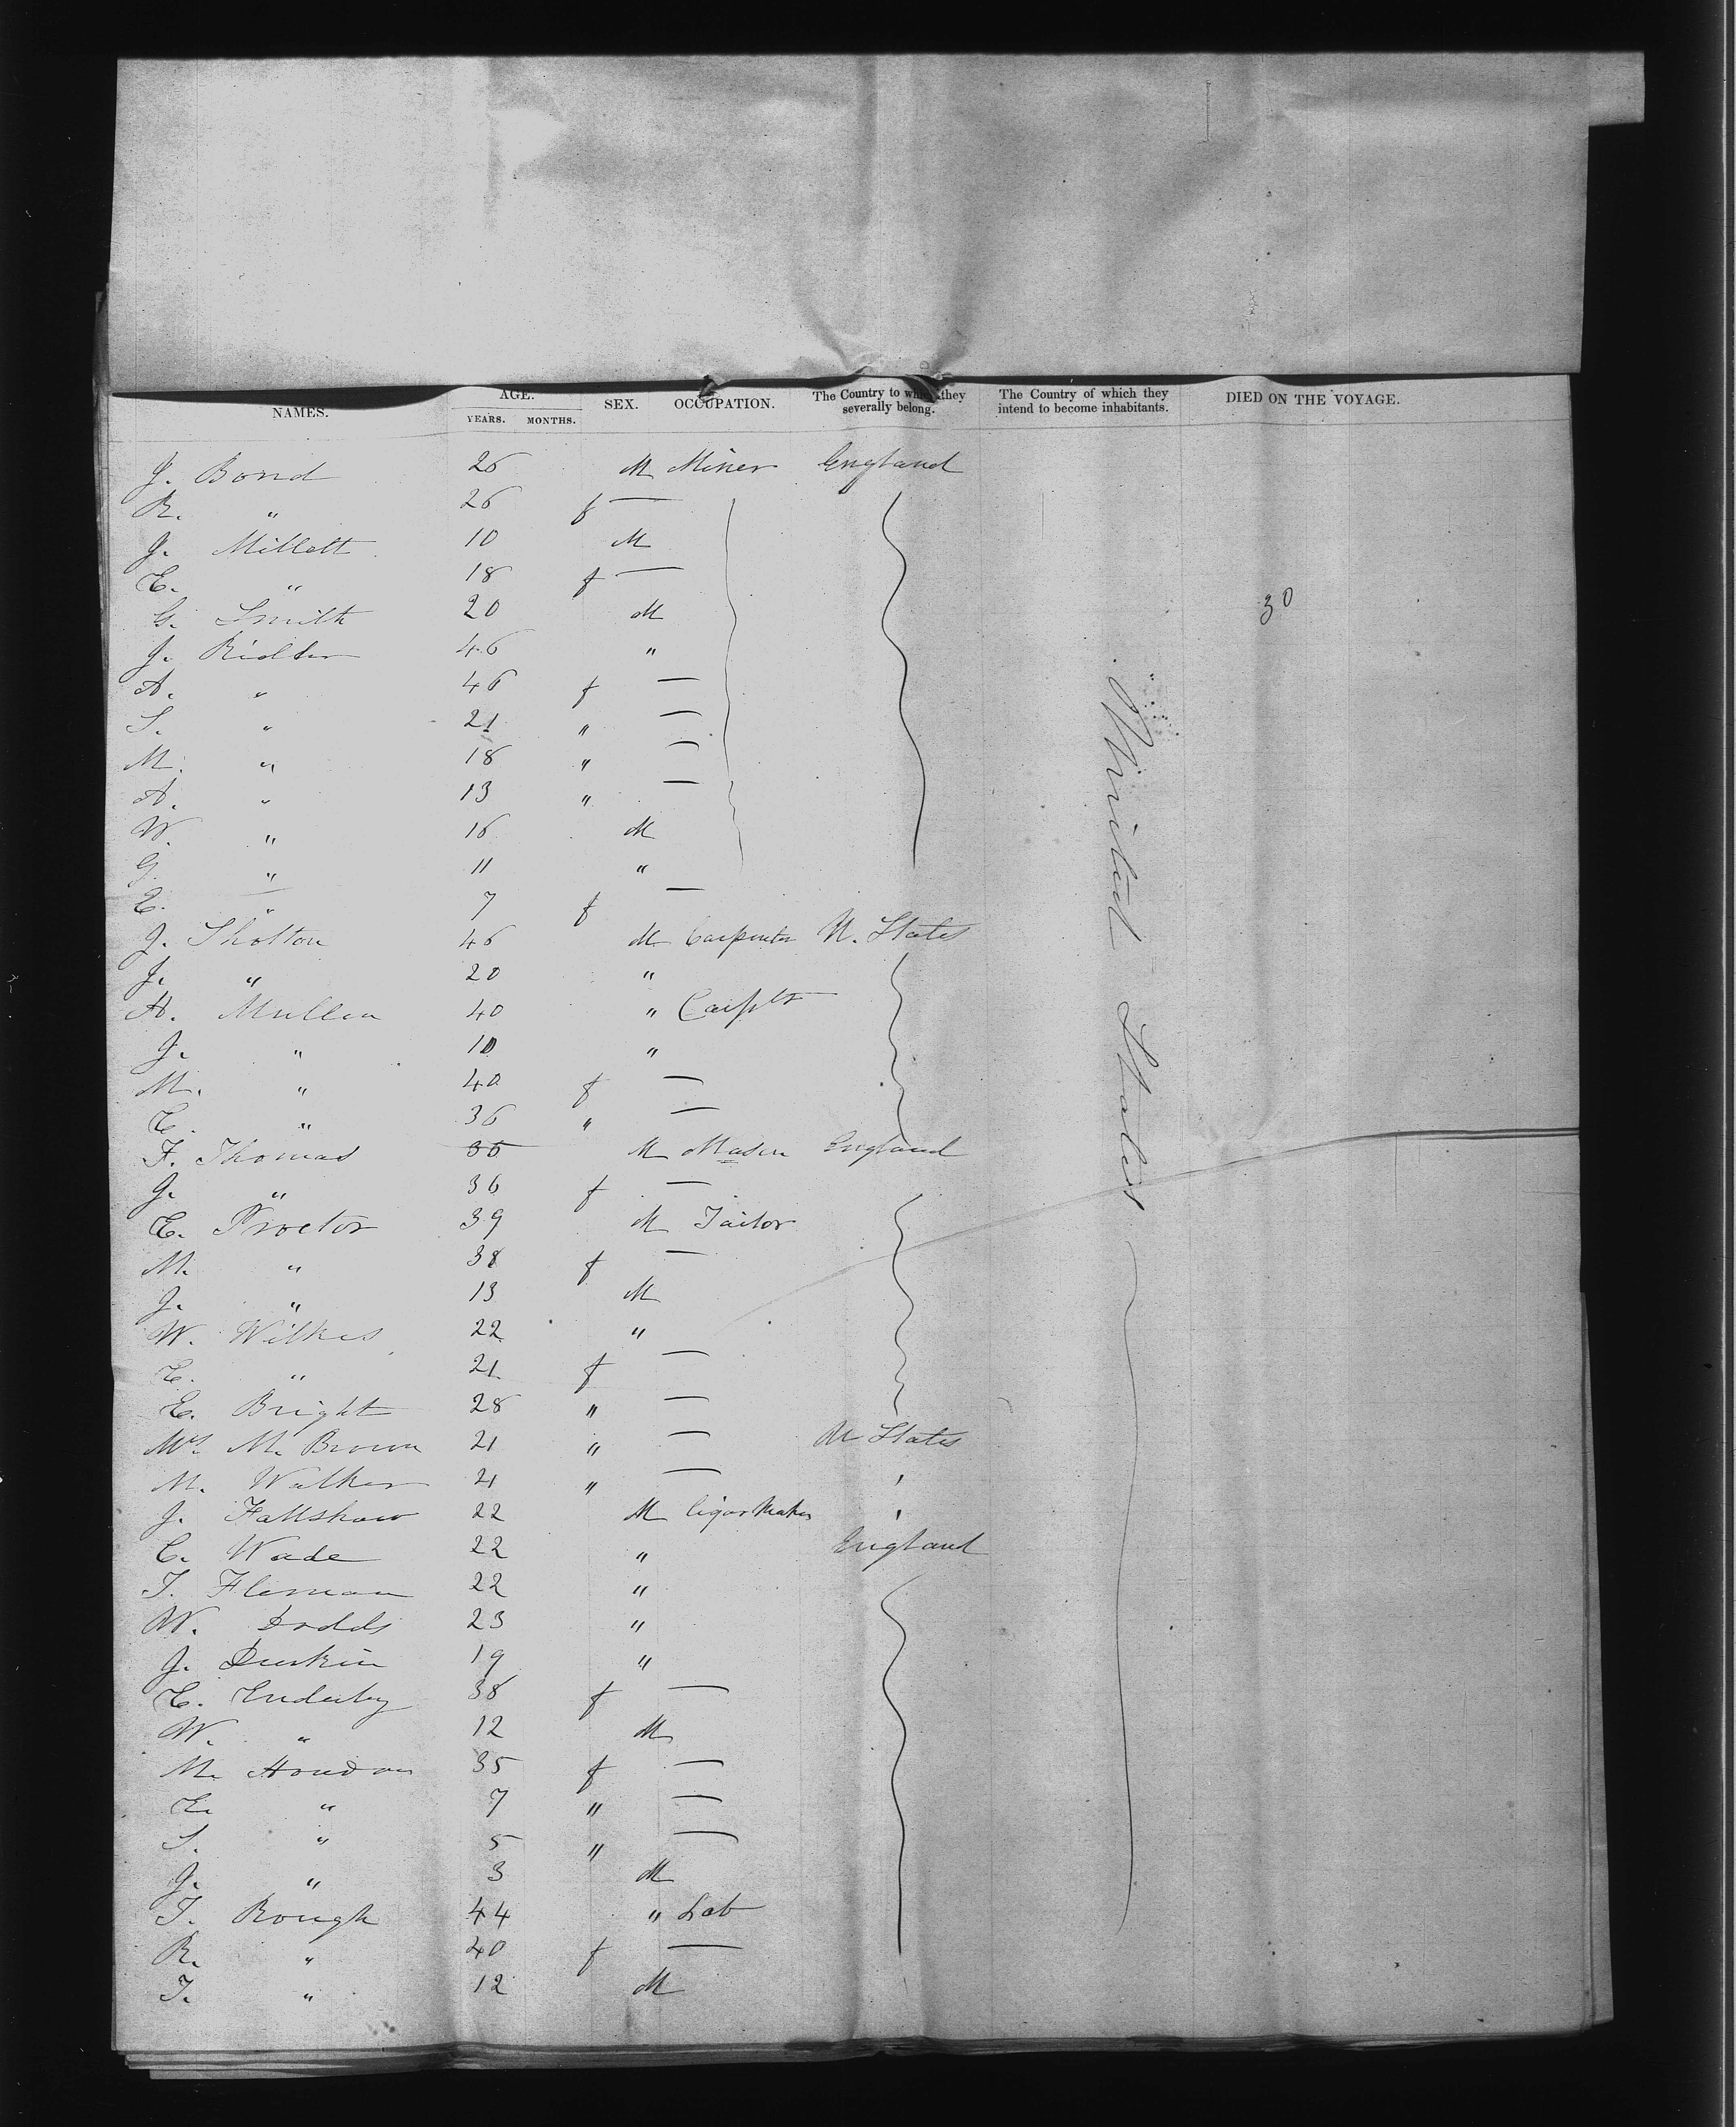 NAMES. AGE. YEARS. MONTHS. SEX. OCCUPATION. The Country to which they severally belong. The Country of which they intend to become inhabitants. DIED ON THE VOYAGE.
J. Bond 26 M Miner England
R. " 26 f —
J. Millett 10 M
E. " 18 f —
G. Smith 20 M 30
J. Ridler 46 "
A. " 46 f —
S. " 21 " —
M. " 18 " —
A. " 13 " —
W. " 16 M
G. " 11 "
E. " 7 f —
J. Shotton 46 M Carpenter U. States
J. " 20 "
A. Mullen 40 " Carptr
J. " 10 "
M. " 40 f —
E. " 36 " —
F. Thomas 36 M Mason England
J. " 36 f —
E. Proctor 39 M Tailor
M. " 38 f —
J. " 13 M
W. Wilkes 22 "
E. " 21 f —
E. Bright 28 " —
Mrs M. Brown 21 " — U States
M. Walker 21 " — "
J. Fallshaw 22 M Cigar Maker "
C. Wade 22 " England
T. Fleman 22 "
W. Dodds 23 "
J. Durkin 19 "
E. Enderby 38 f —
W. " 12 M
M. 35 f —
E. " 7 " —
S. " 5 " —
J. " 3 M
T. Rough 44 " Lab
R. " 40 f —
T. " 12 M
United States